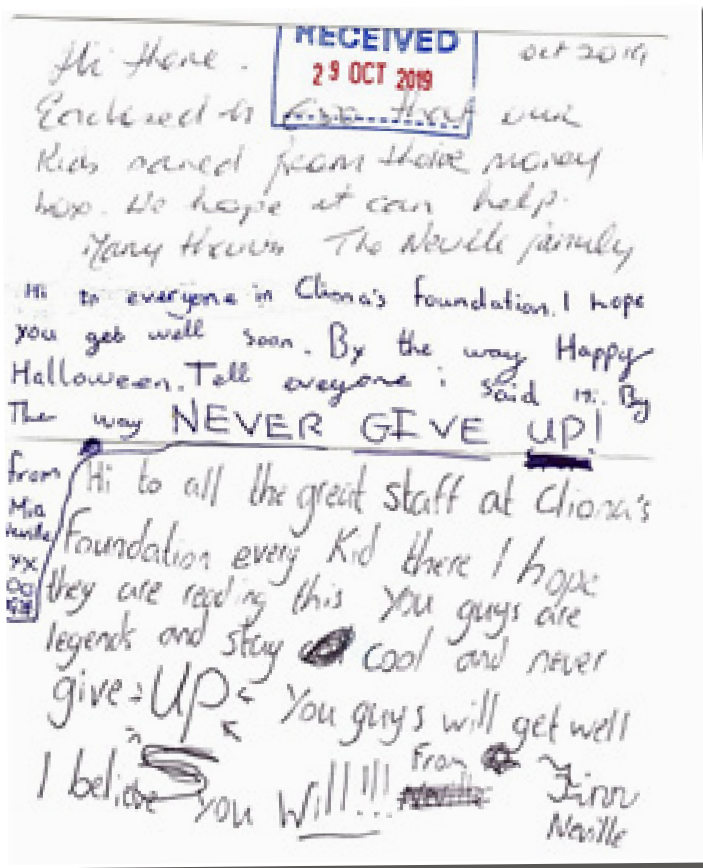 RECEIVED
29 OCT 2019
Oct 2019
Hi there.
Enclosed is that our
Kids raised from there money
box. We hope it can help.
Many thanks The Neville family
Hi to everyone in Cliona's foundation. I hope
you get well soon. By the way Happy
Halloween. Tell eveyone i said Hi. By
The way NEVER GIVE UP!
from
Mia
Neville
Hi to all the great staff at Cliona's
Foundation every Kid there I hope
they are reading this You guys are
legends and stay cool and never
give UP You guys will get well
I believe you Will!!!
From Finn
Neville